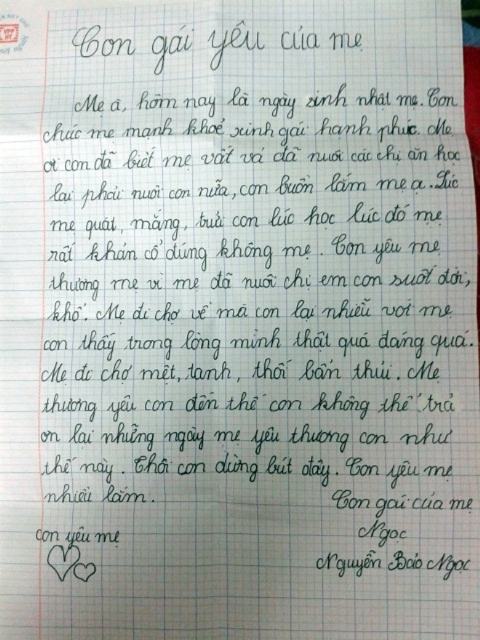 Con gái yêu của mẹ
Mẹ ạ, hôm nay là ngày sinh nhật mẹ. Con
chúc mẹ mạnh khoẻ xinh gái hạnh phúc. Mẹ
ơi con đã biết mẹ vất vả đã nuôi các chị ăn học
lại phải nuôi con nữa, con buồn lắm mẹ ạ. Lúc
mẹ quát, mắng, con lúc học lúc đó mẹ
rất khán cổ đúng không mẹ. Con yêu mẹ
thương mẹ vì mẹ đã nuôi chị em con suốt đời,
khổ. Mẹ đi chợ về mà con lại nhiễu với mẹ
con thấy trong lòng mình thật quá đáng quá.
Mẹ đi chợ mệt, tanh, thối bẩn thủi. Mẹ
thương yêu con đến thế con không thể trả
ơn lại những ngày mẹ yêu thương con như
thế này. Thôi con dừng bút ở đây. Con yêu mẹ
nhiều lắm.
Con gái của mẹ
con yêu mẹ
Ngọc
Nguyễn Bảo Ngọc